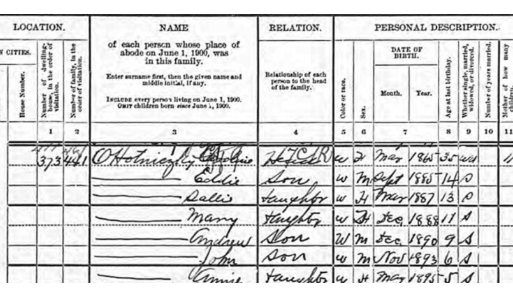 LOCATION. NAME RELATION. PERSONAL DESCRIPTION.
N CITIES. of each person whose place of abode on June 1, 1900, was in this family. DATE OF BIRTH.
Enter surname first, then the given name and middle initial, if any.
INCLUDE every person living on June 1, 1900. OMIT children born since June 1, 1900.
House Number. Number of dwelling-house, in the order of visitation. Number of family, in the order of visitation. Relationship of each person to the head of the family. Color or race. Sex. Month. Year. Age at last birthday. Whether single, married, widowed, or divorced. Number of years married. Mother of how many
1 2 3 4 5 6 7 8 9 10 11
373 441 W Mar 1865 35 Wd
Eddie Son W M Sept 1885 14 S
Sallie Daughter W F Mar 1887 13 S
Mary Daughter W F Dec 1888 11 S
Andrew Son W M Dec 1890 9 S
John Son W M Nov 1893 6 S
Annie Daughter W F May 1895 5 S